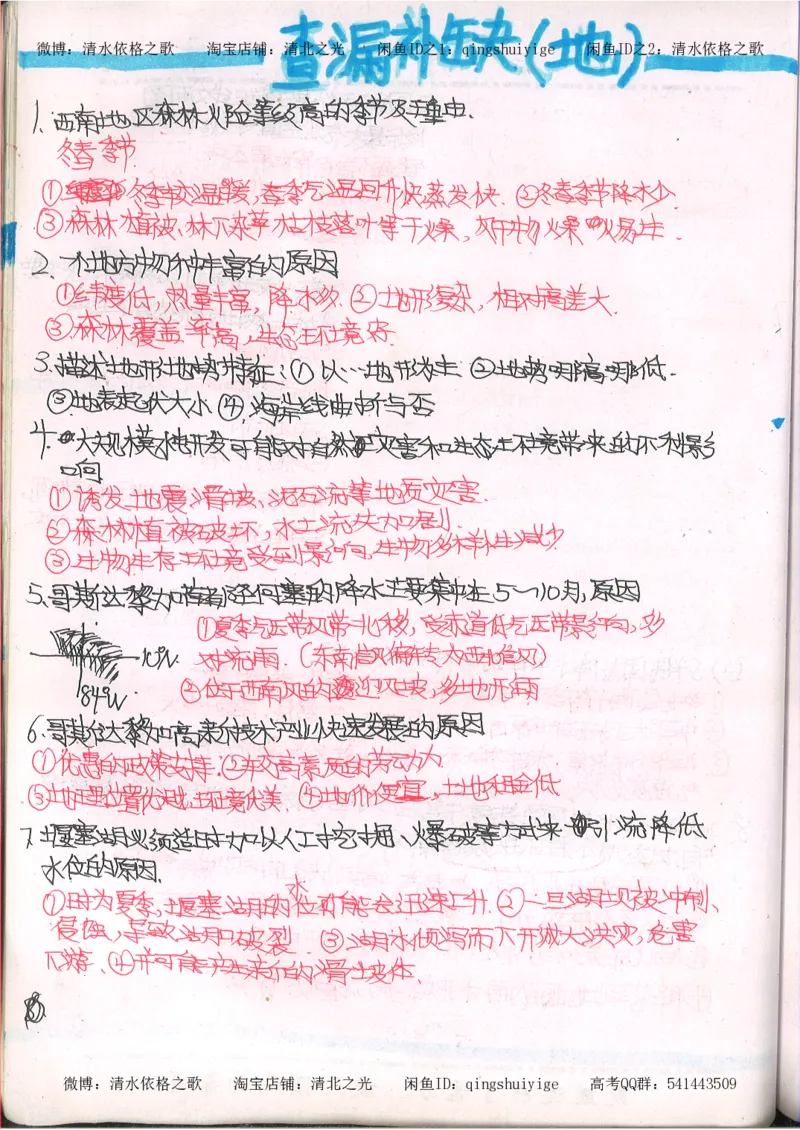 微博：清水依格之歌 淘宝店铺：清北之光 闲鱼ID之1：qingshuiyige 闲鱼ID之2：清水依格之歌
查漏补缺(地)
1. 西南地区森林火险等级高的季节及理由.
冬春季节.
①冬季较温暖,春季气温回升快蒸发快. ②冬春季节降水少
③森林植被、林下杂草枯枝落叶等干燥, 燥易生.
2. 一个地方物种丰富的原因
①纬度低,热量丰富,降水多. ②地形复杂,相对高差大.
③森林覆盖率高,生态环境好.
3.描述地形地势特征:①以…地形为主 ②地势哪高哪低.
③地表起伏大小 ④海岸线曲折与否
4.大规模水电开发可能对自然灾害和生态环境带来的不利影
响
①诱发地震、滑坡、泥石流等地质灾害.
②森林植被破坏,水土流失加剧.
③生物生存环境受到影响,生物多样性减少
5、哥斯达黎加 的降水主要集中在5～10月,原因
①夏季气压带风带北移,受赤道低气压带影响,多
对流雨.(东南信风偏转为西南信风)
10°N.
84°W
②位于西南风的迎风坡,多地形雨
6、哥斯达黎加高素付技术产业快速发展的原因
①优惠的政策支持. ②较高素质的劳动力
③地理位置优越,环境优美. ④地价便宜,土地租金低
7.堰塞湖必须适时加以人工挖掘、爆破等方式来引流降低
水位的原因.
①时为夏季,堰塞湖的水位可能会迅速上升. ②一旦湖坝被冲刷、
侵蚀,导致湖口破裂. ③湖水倾泻而下形成大洪灾,危害
下游. ④并可能产生新的滑坡体.
微博：清水依格之歌 淘宝店铺：清北之光 闲鱼ID：qingshuiyige 高考QQ群：541443509